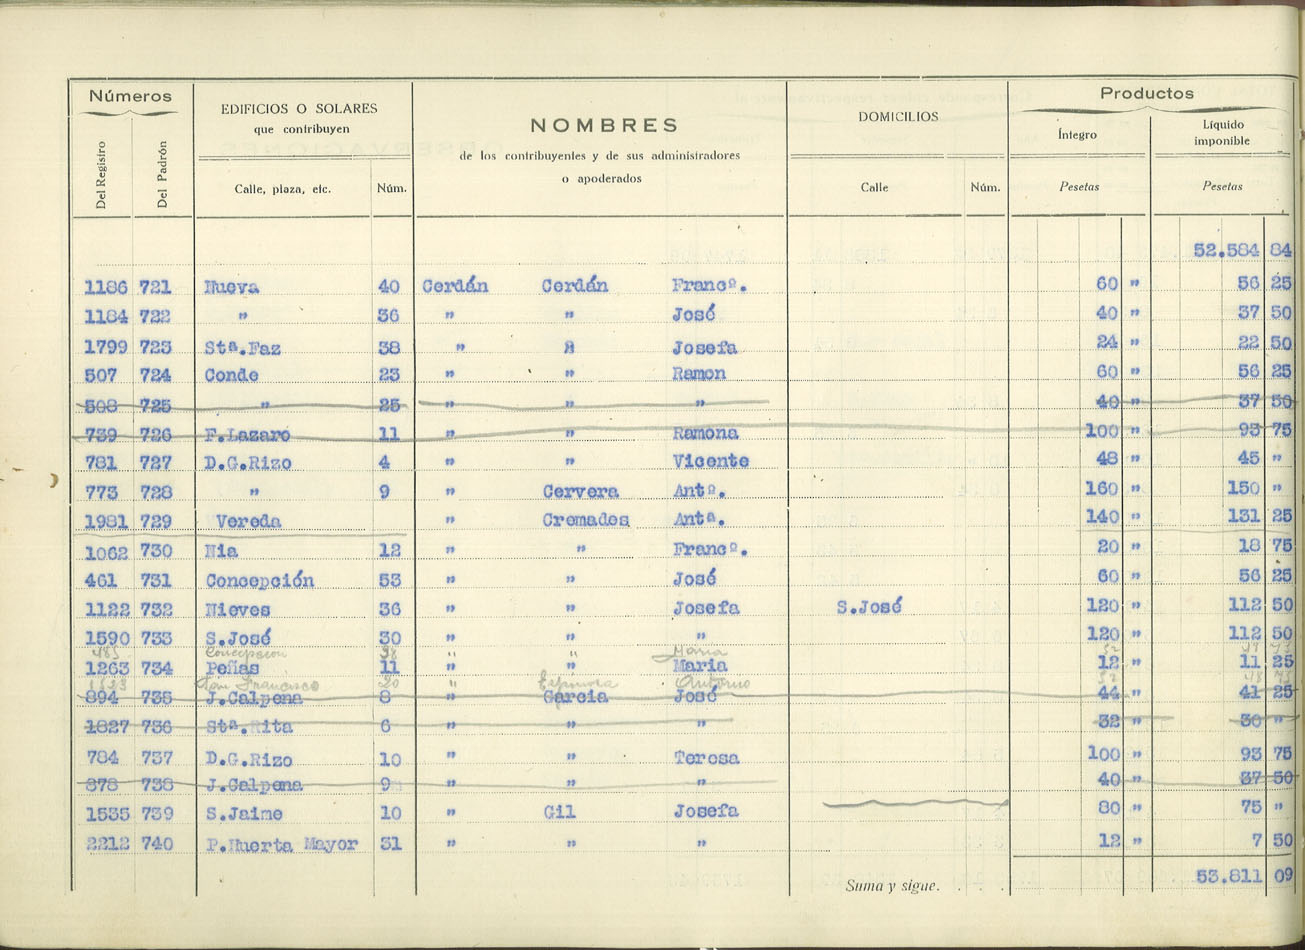 Números
EDIFICIOS O SOLARES
que contribuyen
NOMBRES
de los contribuyentes y de sus administradores
o apoderados
DOMICILIOS
Productos
Del Registro
Del Padrón
Calle, plaza, etc.
Núm.
Calle
Núm.
Íntegro
Pesetas
Líquido
imponible
Pesetas
52.584 84
1186 721 Nueva 40 Cerdán Cerdán Francº. 60 " 56 25
1184 722 " 36 " " José 40 " 37 50
1799 723 Stª.Faz 38 " " Josefa 24 " 22 50
507 724 Conde 23 " " Ramon 60 " 56 25
508 725 " 25 " " " 40 " 37 50
739 726 F.Lazaro 11 " " Ramona 100 " 93 75
781 727 D.G.Rizo 4 " " Vicente 48 " 45 "
773 728 " 9 " Cervera Antº. 160 " 150 "
1981 729 Vereda " Cremades Antª. 140 " 131 25
1062 730 Nia 12 " " Francº. 20 " 18 75
461 731 Concepción 53 " " José 60 " 56 25
1122 732 Nieves 36 " " Josefa S.José 120 " 112 50
1590 733 S.José 30 " " " 120 " 112 50
485 Concepcion 38 " " Maria 52
1263 734 Peñas 11 " " Maria 12 " 11 25
San Francisco 20 " Espinosa Antonio 52 48 75
894 735 J.Calpena 8 " Garcia José 44 " 41 25
1827 736 Stª.Rita 6 " " " 32 " 30 "
784 737 D.G.Rizo 10 " " Teresa 100 " 93 75
878 738 J.Calpena 9 " " " 40 " 37 50
1535 739 S.Jaime 10 " Gil Josefa 80 " 75 "
2212 740 P.Huerta Mayor 31 " " " 12 " 7 50
Suma y sigue. . . . 53.811 09